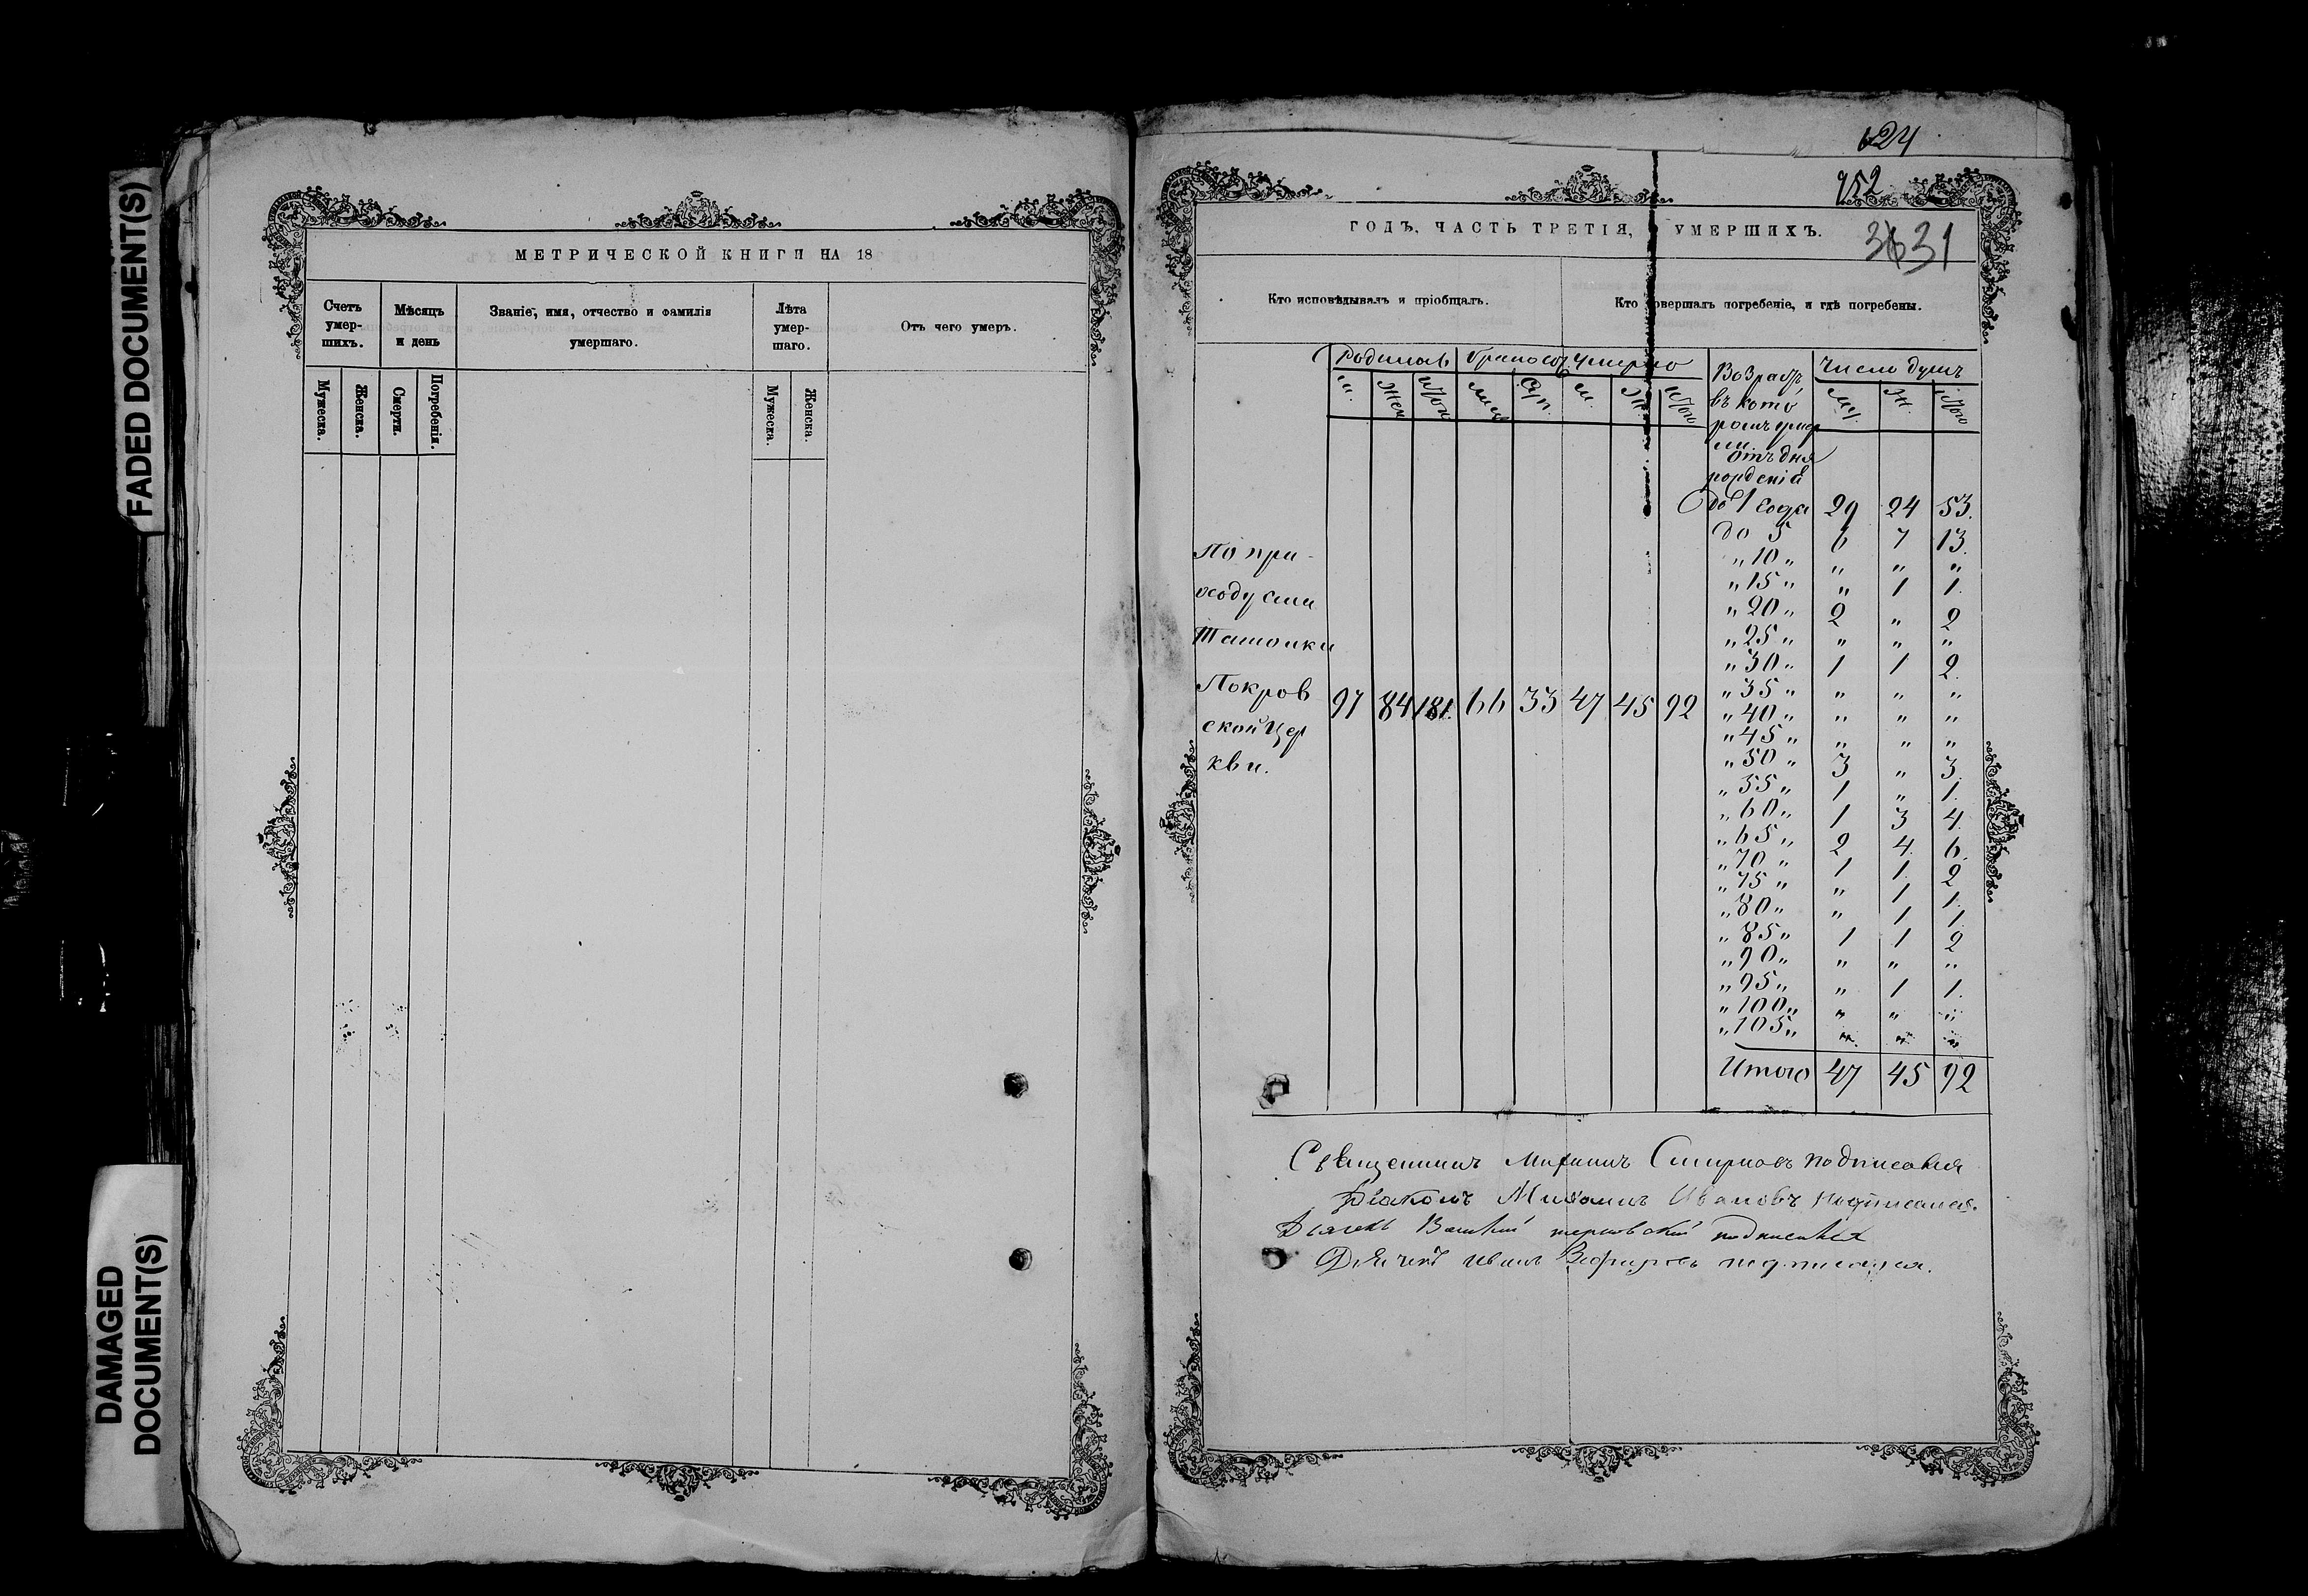 FADED DOCUMENT(S)
DAMAGED
DOCUMENT(S)
МЕТРИЧЕСКОЙ КНИГИ НА 18
Счетъ умер-шихъ.
Мѣсяцъ и день
Званіе, имя, отчество и фамилія умершаго.
Лѣта умер-шаго.
Отъ чего умеръ.
Мужеска.
Женска.
Смерти.
Погребенія.
Мужеска.
Женска.
624
952
3631
ГОДЪ, ЧАСТЬ ТРЕТІЯ, УМЕРШИХЪ.
Кто исповѣдывалъ и пріобщалъ.
Кто совершалъ погребеніе, и гдѣ погребены.
Родилось
Умерло
Возрастъ
въ кото
ромъ умер
ли.
Число душъ
м. Жен Итого
м. Ж. Итого
му. Ж. Итого
отъ дня
рожденія
до 1 года 29 24 53.
до 5 6 7 13.
„ 10 „ „ „ „
„ 15 „ „ 1 1.
„ 20 „ 2 „ 2
„ 25 „ „ „ „
„ 30 „ 1 1 2.
„ 35 „ „ „ „
„ 40 „ „ „ „
„ 45 „ „ „ „
„ 50 „ 3 „ 3.
„ 55 „ 1 „ 1.
„ 60 „ 1 3 4.
„ 65 „ 2 4. 6.
„ 70 „ 1 1. 2
„ 75 „ „ 1 1.
„ 80 „ „ 1 1.
„ 85 „ 1 1 2
„ 90 „ „ „ „
„ 95 „ „ 1 1.
„ 100 „ „ „ „
„ 105 „ „ „ „
Итого 47 45 92
По при-
ходу
Покров
ской Цер
кви.
97 84 181. 66 33 47 45 92
Священникъ Смирновъ подписался
Діаконъ Ивановъ подписался.
подписался
Дьячекъ Иванъ подписался.